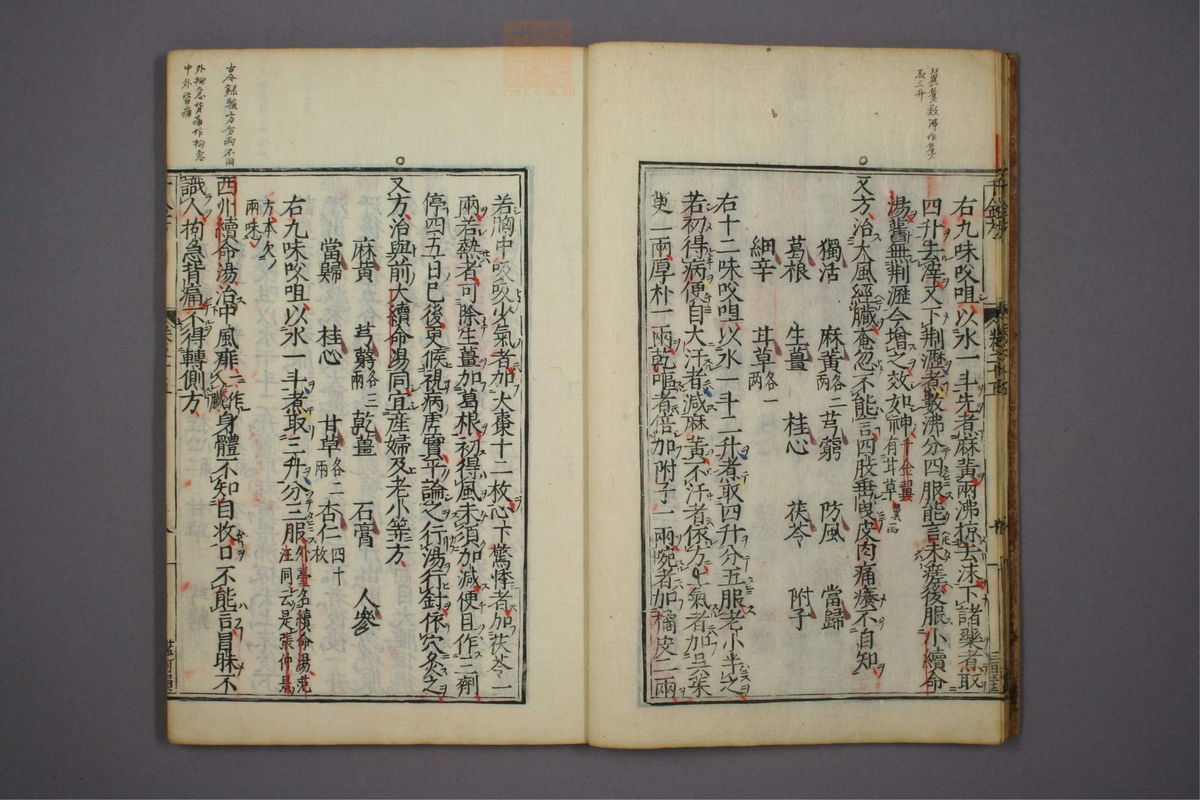 翼煮數沸作煮
取三升
右九味㕮咀以水一斗先煮麻黃兩沸掠去沫下諸藥煮取
四升去滓又下荆瀝煮數沸分四服能言未瘥後服小續命
湯舊無荆瀝今增之效如神千金翼有甘草
又方治大風經臟奄忽不能言四肢垂曳皮肉痛癢不自知
獨活 麻黃各三兩 芎藭 防風 當歸
葛根 生薑 桂心 茯苓 附子
細辛 甘草各一兩
右十二味㕮咀以水一斗二升煮取四升分五服老小半之
若初得病便自大汗者減麻黃不汗者依方上氣者加吳茱
萸二兩厚朴一兩乾嘔者倍加附子一兩啘者加橘皮二兩
若胸中吸吸少氣者加大棗十二枚心下驚悸者加茯苓一
兩若熱者可除生薑加葛根初得風未須加減便且作三劑
停四五日已後更候視病虛實平論之行湯行針依穴灸之
又方治與前大續命湯同宜產婦及老小等方
麻黃 芎藭各三兩 乾薑 石膏 人參
當歸 桂心 甘草各二兩 杏仁四十枚
右九味㕮咀以水一斗煮取三升分三服外臺名續命湯范汪同云是張仲景
方本欠兩味
西州續命湯治中風痱一作入臟身體不知自收口不能言冒昧不
識人拘急背痛不得轉側方
古今錄驗方分兩不同
外拘急背痛作拘急
中外皆痛